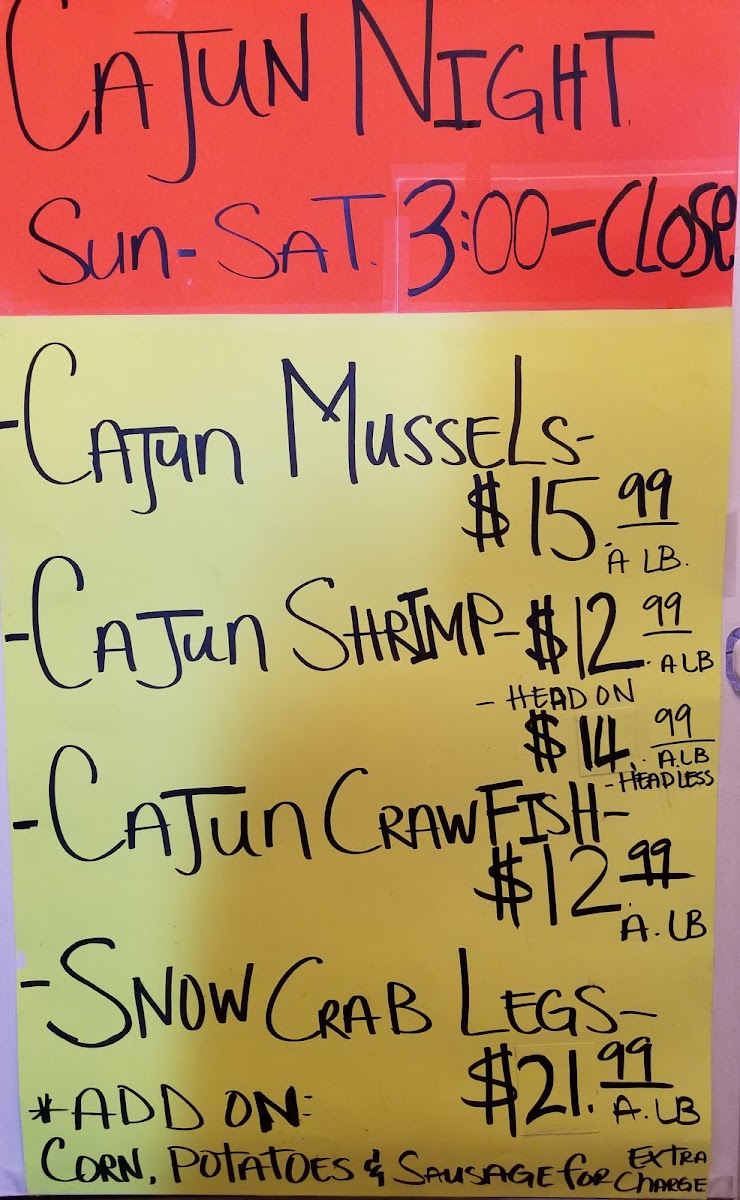 CAJUN NIGHT
SUN-SAT. 3:00-CLOSE
-CAJUN MUSSELS-
$15.99
A LB.
-CAJUN SHRIMP-$12.99
A LB
- HEAD ON
$14.99
A.LB
-HEADLESS
-CAJUN CRAWFISH-
$12.99
A.LB
-SNOW CRAB LEGS-
$21.99
A.LB
*ADD ON:
CORN, POTATOES & SAUSAGE FOR EXTRA CHARGE